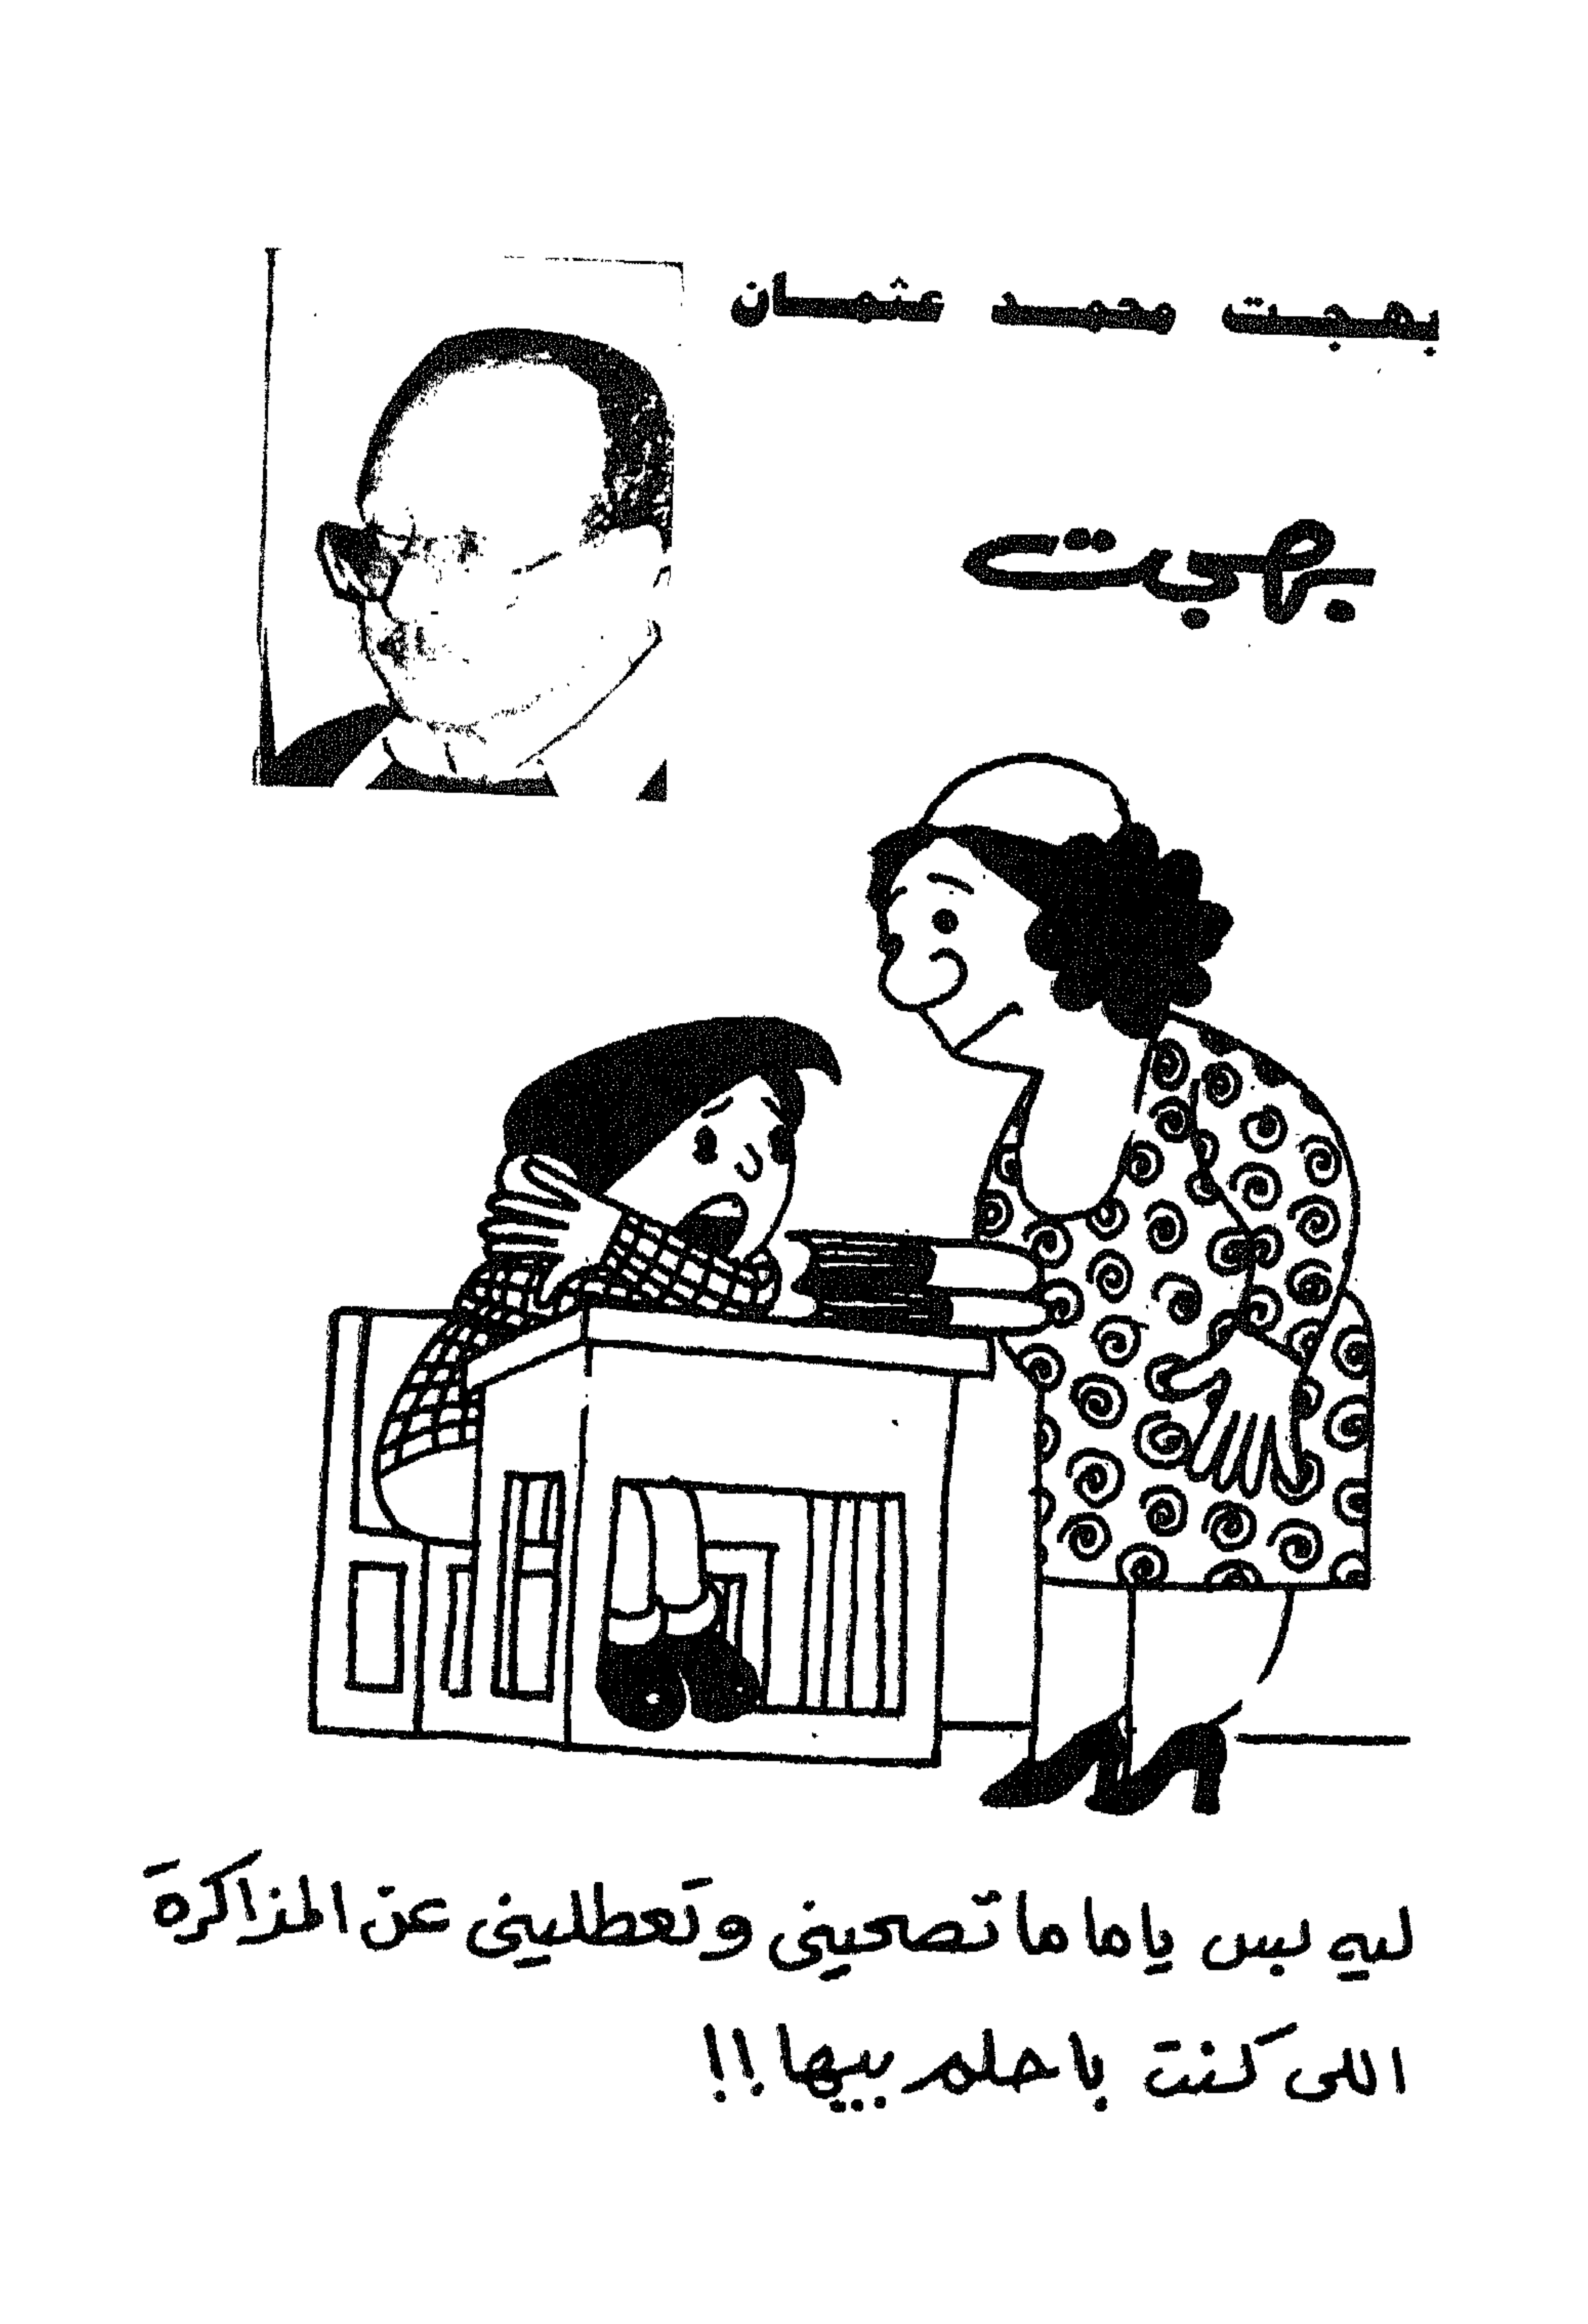 بهجت محمد عثمان
بهجت
ليه بس يا ماما تصحيني وتعطليني عن المذاكرة
اللى كنت باحلم بيها !!